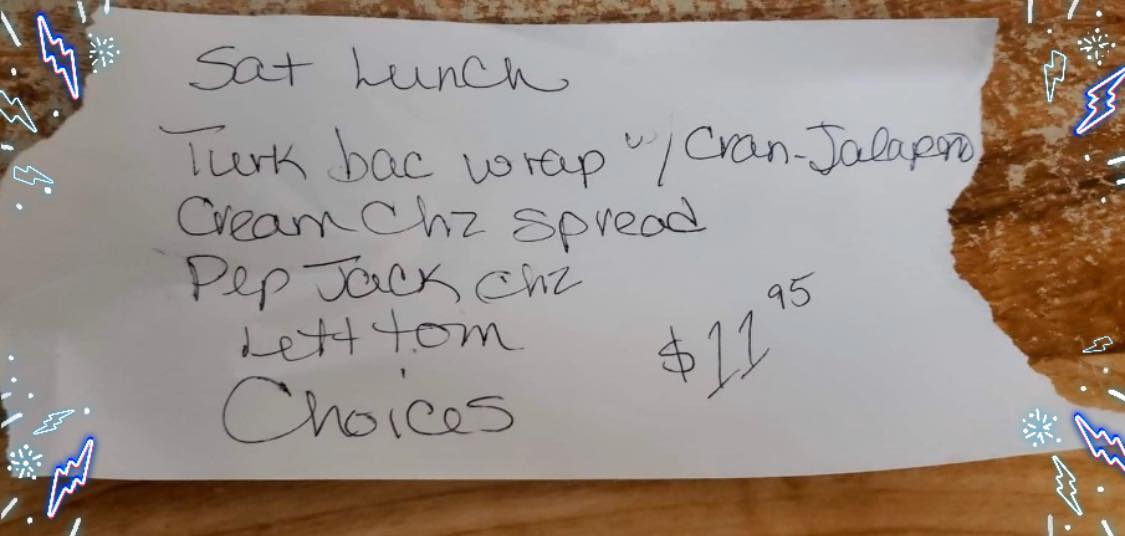 Sat Lunch
Turk bac wrap w/ Cran-Jalapeno
Cream Chz spread
Pep Jack chz
Lett tom
$11.95
Choices